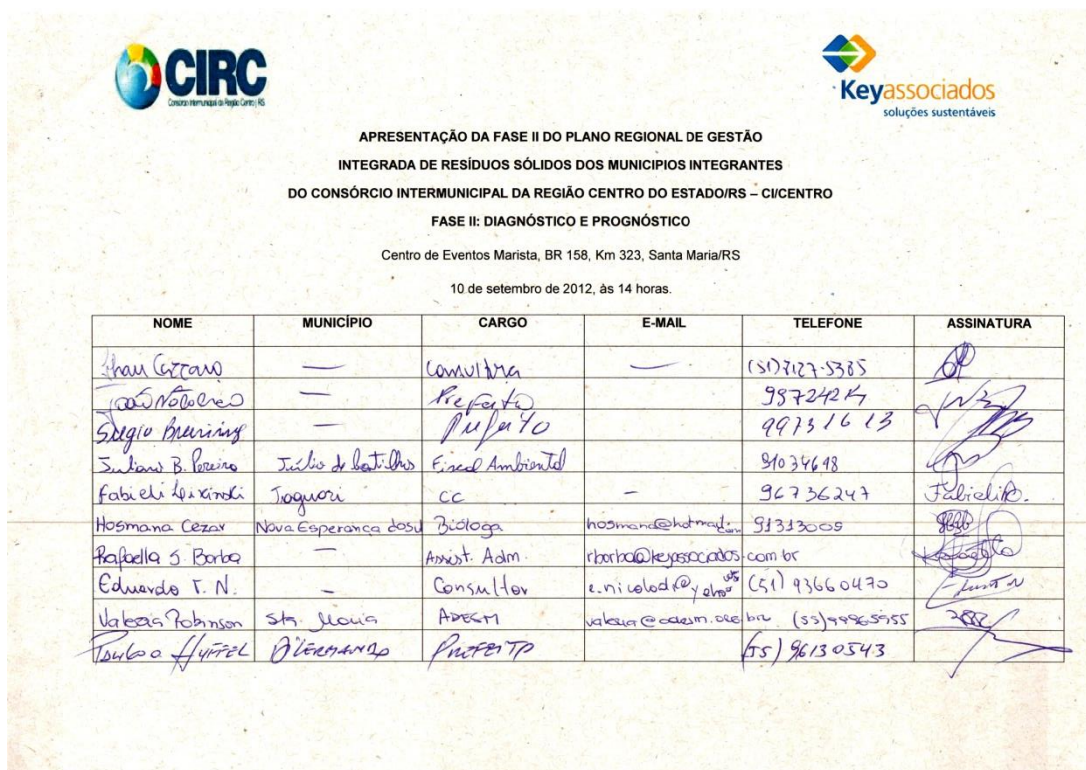 CIRC
Consórcio Intermunicipal da Região Centro | RS
Keyassociados
soluções sustentáveis
APRESENTAÇÃO DA FASE II DO PLANO REGIONAL DE GESTÃO
INTEGRADA DE RESÍDUOS SÓLIDOS DOS MUNICIPIOS INTEGRANTES
DO CONSÓRCIO INTERMUNICIPAL DA REGIÃO CENTRO DO ESTADO/RS – CI/CENTRO
FASE II: DIAGNÓSTICO E PROGNÓSTICO
Centro de Eventos Marista, BR 158, Km 323, Santa Maria/RS
10 de setembro de 2012, às 14 horas.
NOME MUNICÍPIO CARGO E-MAIL TELEFONE ASSINATURA
— Consultora — (51)
João — Prefeito
Sergio — Prefeito 99731613
Juliano B. Pereira Júlio de Castilhos Fiscal Ambiental 91034698
Fabieli Taquari CC – 96736247 Fabieli
Hosmana Cezar Nova Esperança do Sul Bióloga hosmana@hotmail.com 91313009
Rafaella S. Borba — Assist. Adm. rborba@keyassociados.com.br Rafaella
Eduardo T. N. – Consultor (51) 93660470
Valeria Robinson Sta. Maria ADESM valeria@adesm.org.br (55)99965955
Prefeito (55) 96130543